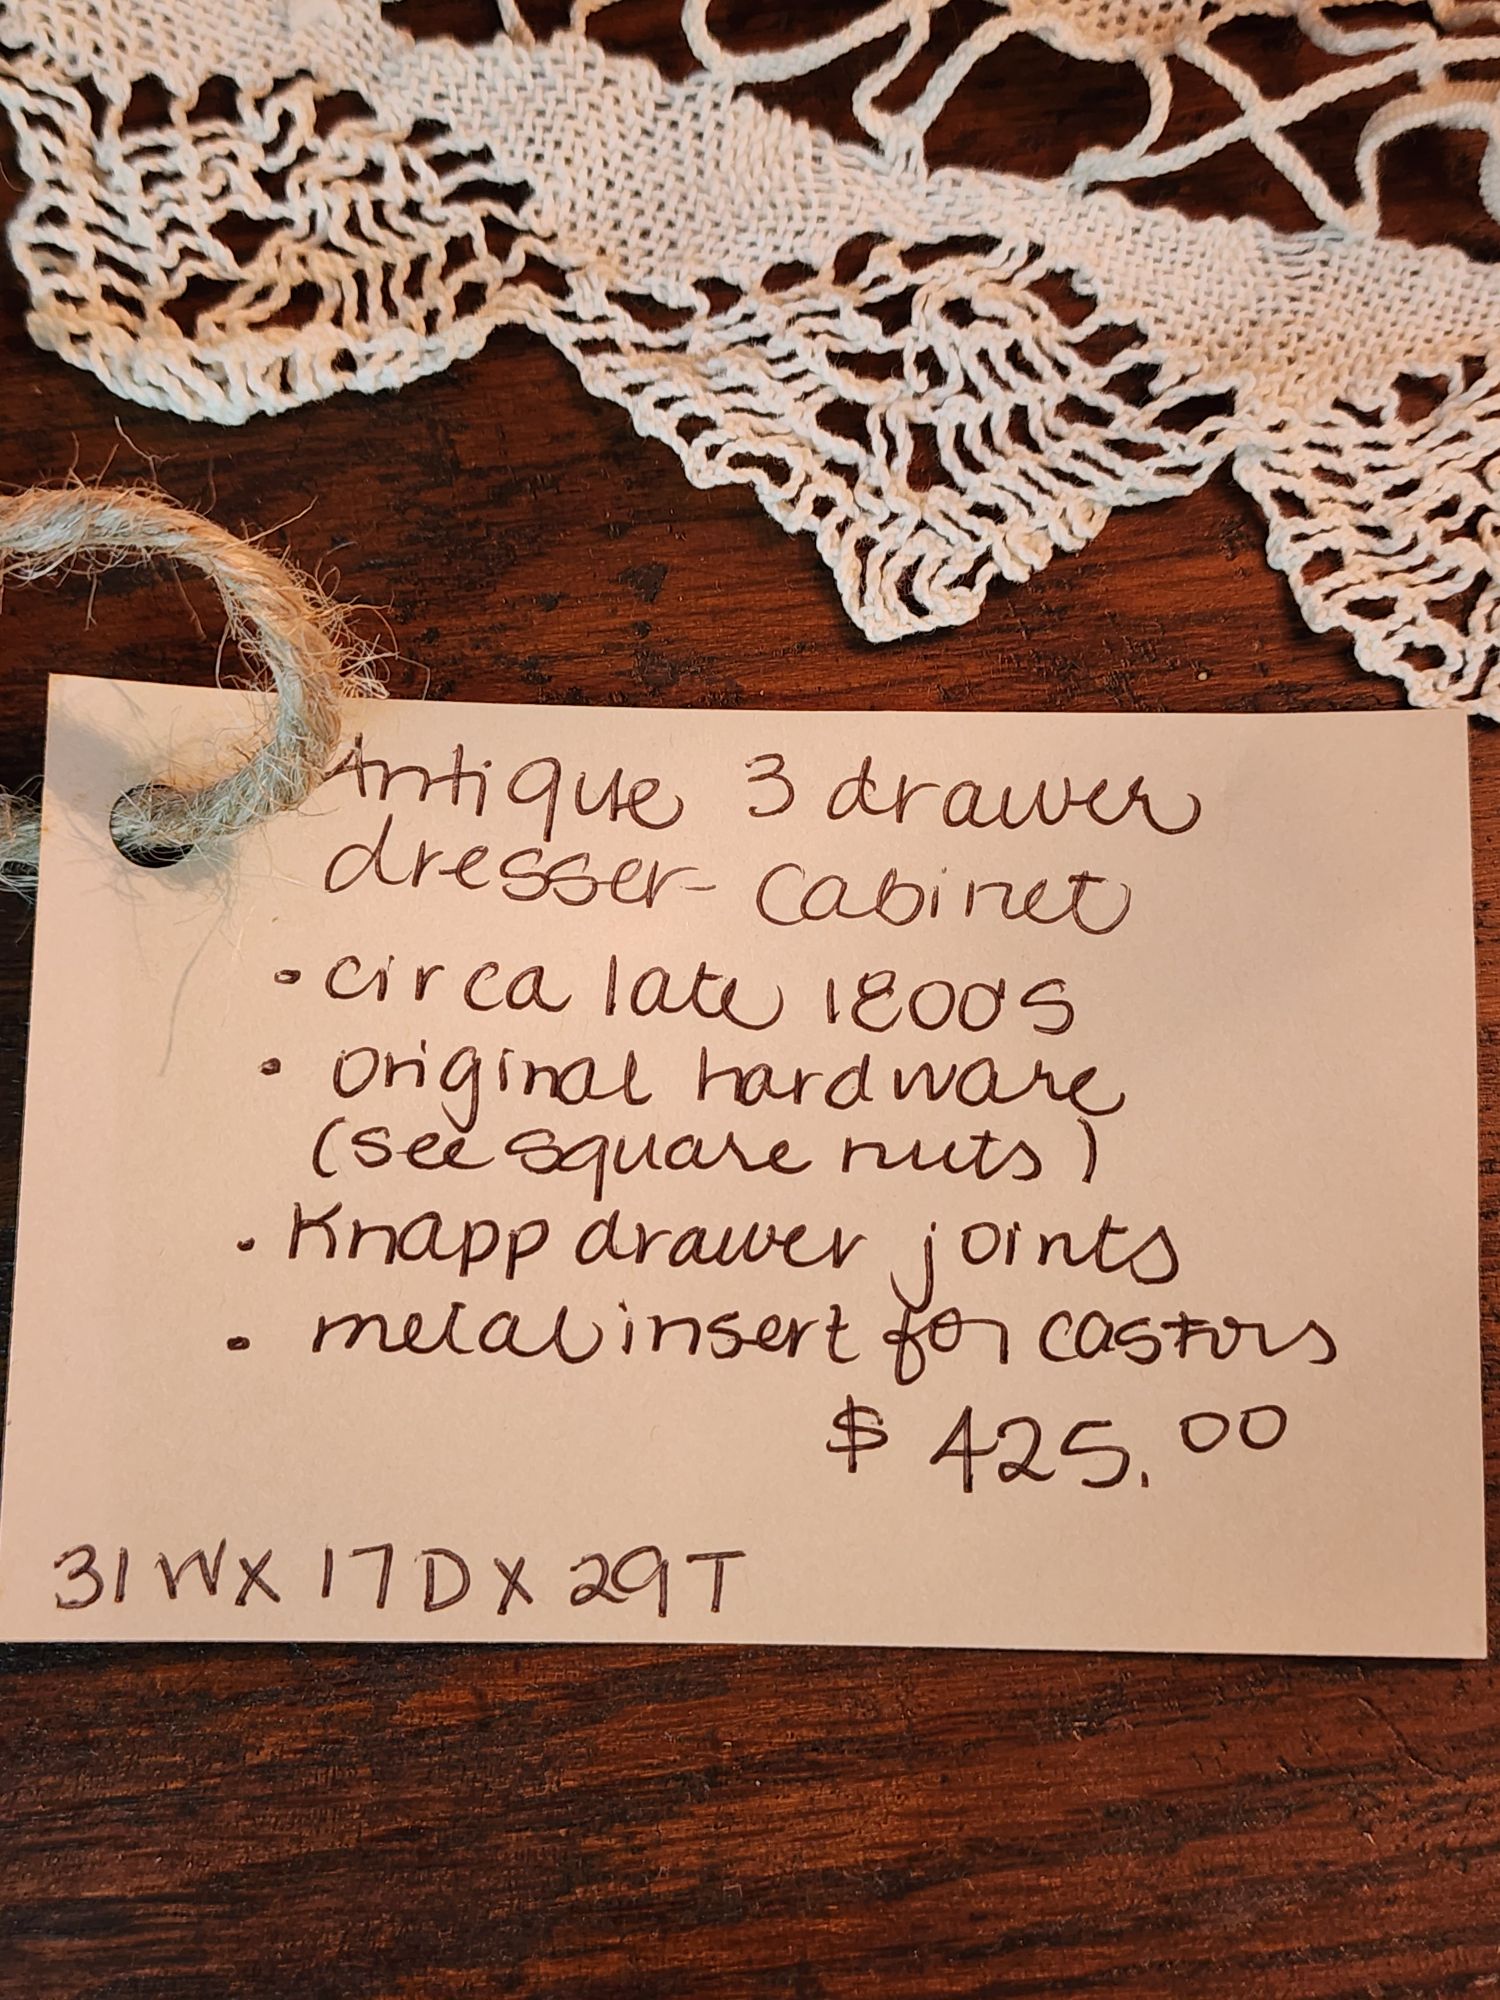 Antique 3 drawer
dresser- Cabinet
• circa late 1800's
• original hardware
(see square nuts)
• Knapp drawer joints
• metal insert for castors
$ 425.00
31 W X 17 D X 29 T